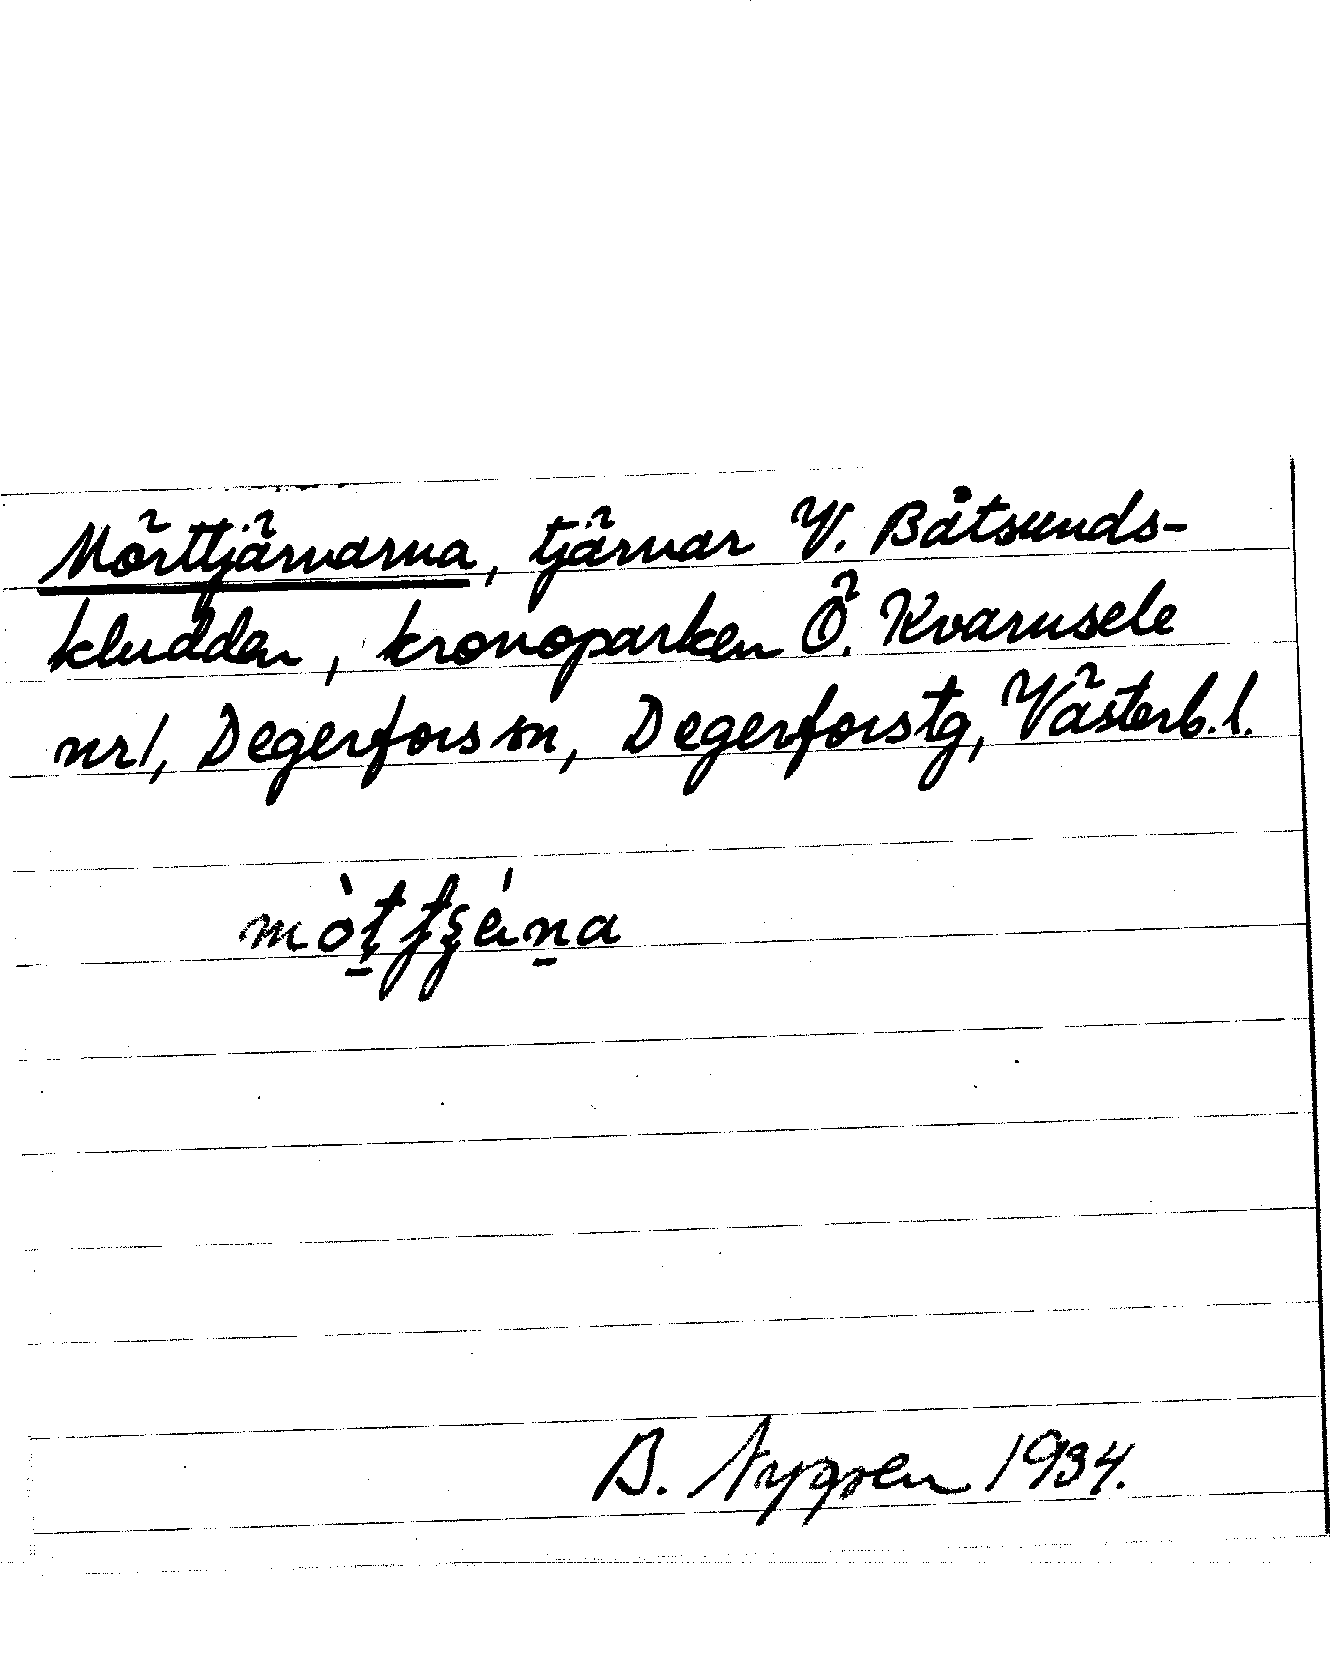 Mörttjärnarna, tjärnar V. Båtsunds-
kludden, kronoparken Ö. Kvarnsele
nr 1, Degerfors sn, Degerfors tg, Västerb. l.
B. Nygren 1934.